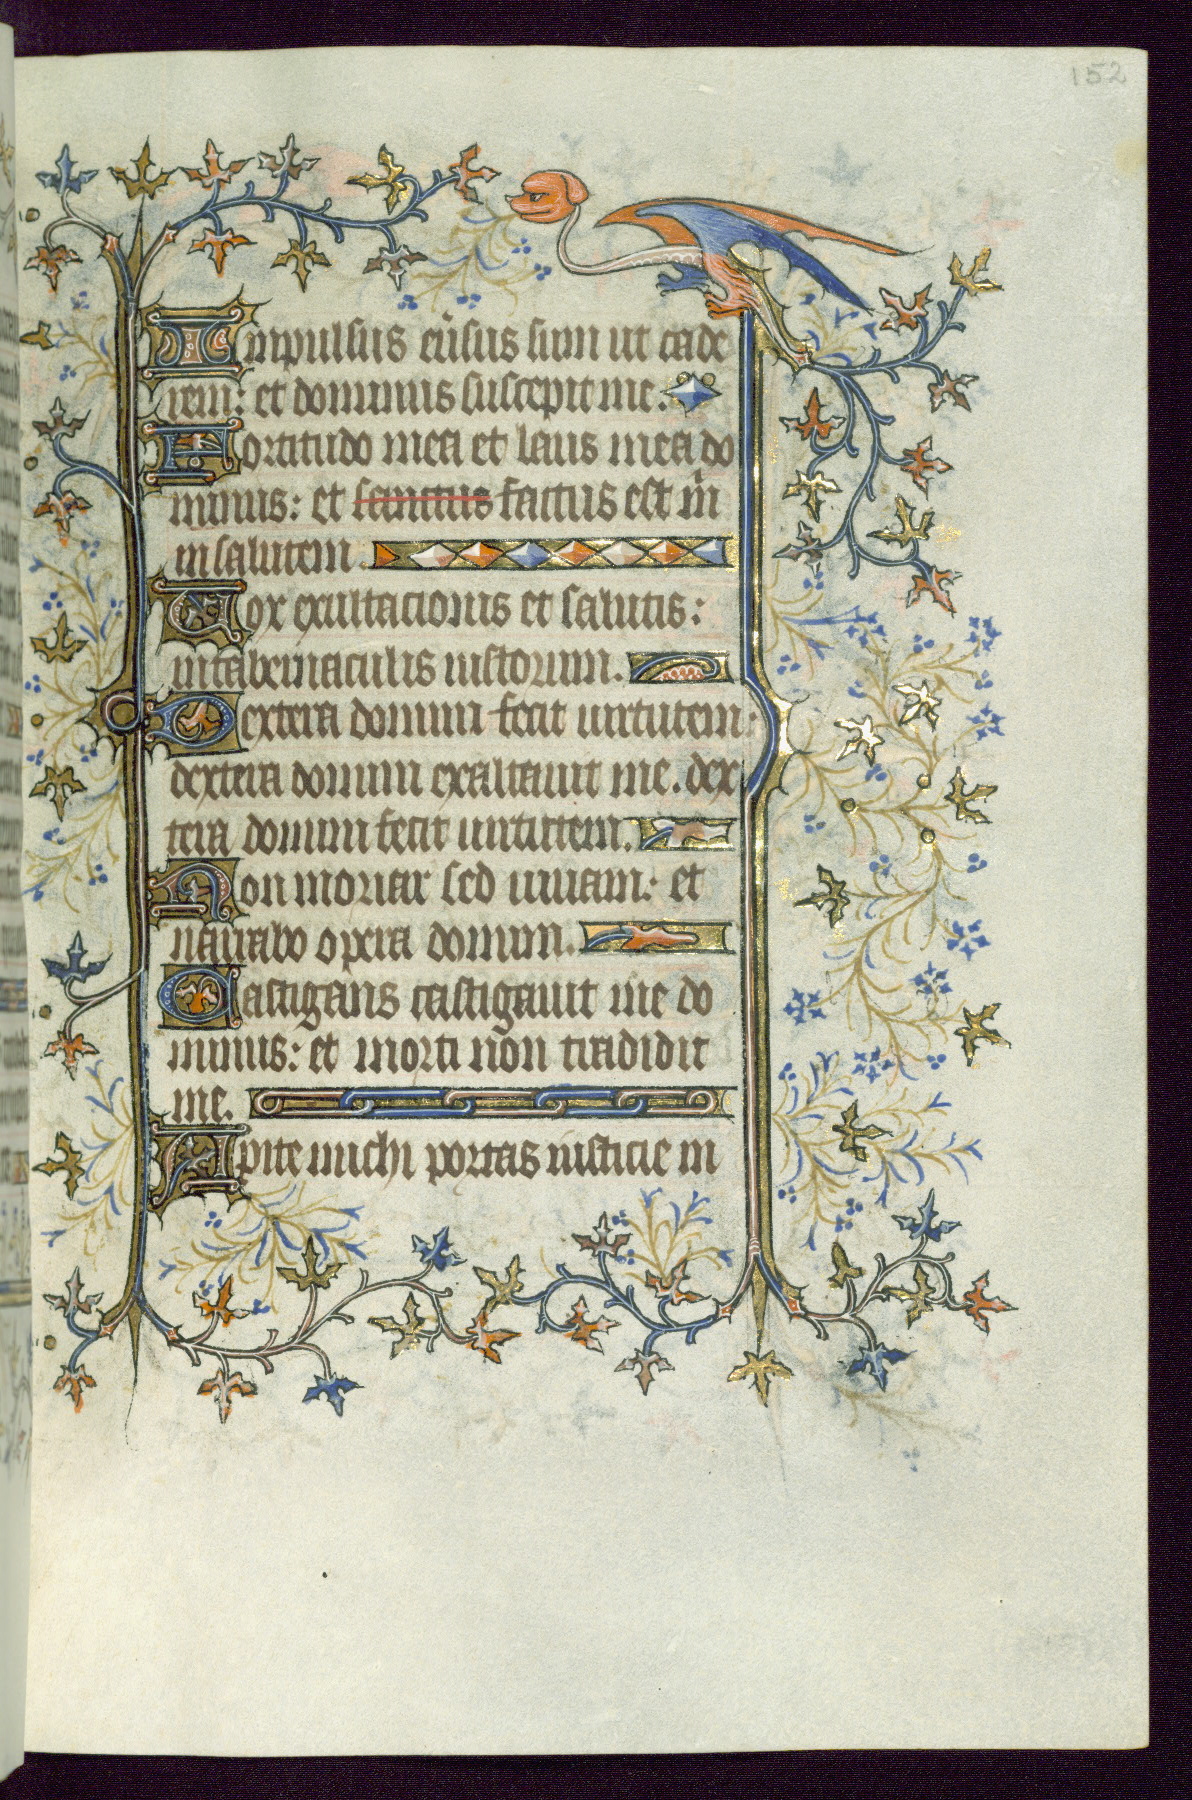 152
Impulsus eũsus sum ut cade
rem: et dominus suscepit me.
Fortitudo mea et laus mea do
minus: et sanctus factus est m̃
in salutem.
Vox exultacionis et salutis:
in tabernaculis iustorum.
Dextera domini fecit uirtutem:
dextera domini exaltauit me. dex
tera domini fecit uirtutem.
Non moriar sed uiuam: et
narrabo opera domini.
Castigans castigauit me do
minus: et morti non tradidit
me.
Apite michi portas iusticie in